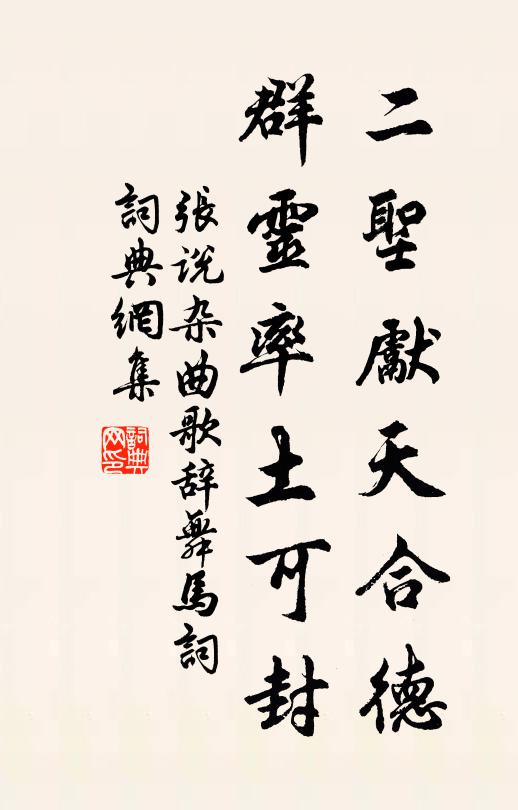 二聖獻天合德
群靈率土可封
張说杂曲歌辞舞馬詞
詞典網集
詞典
网印